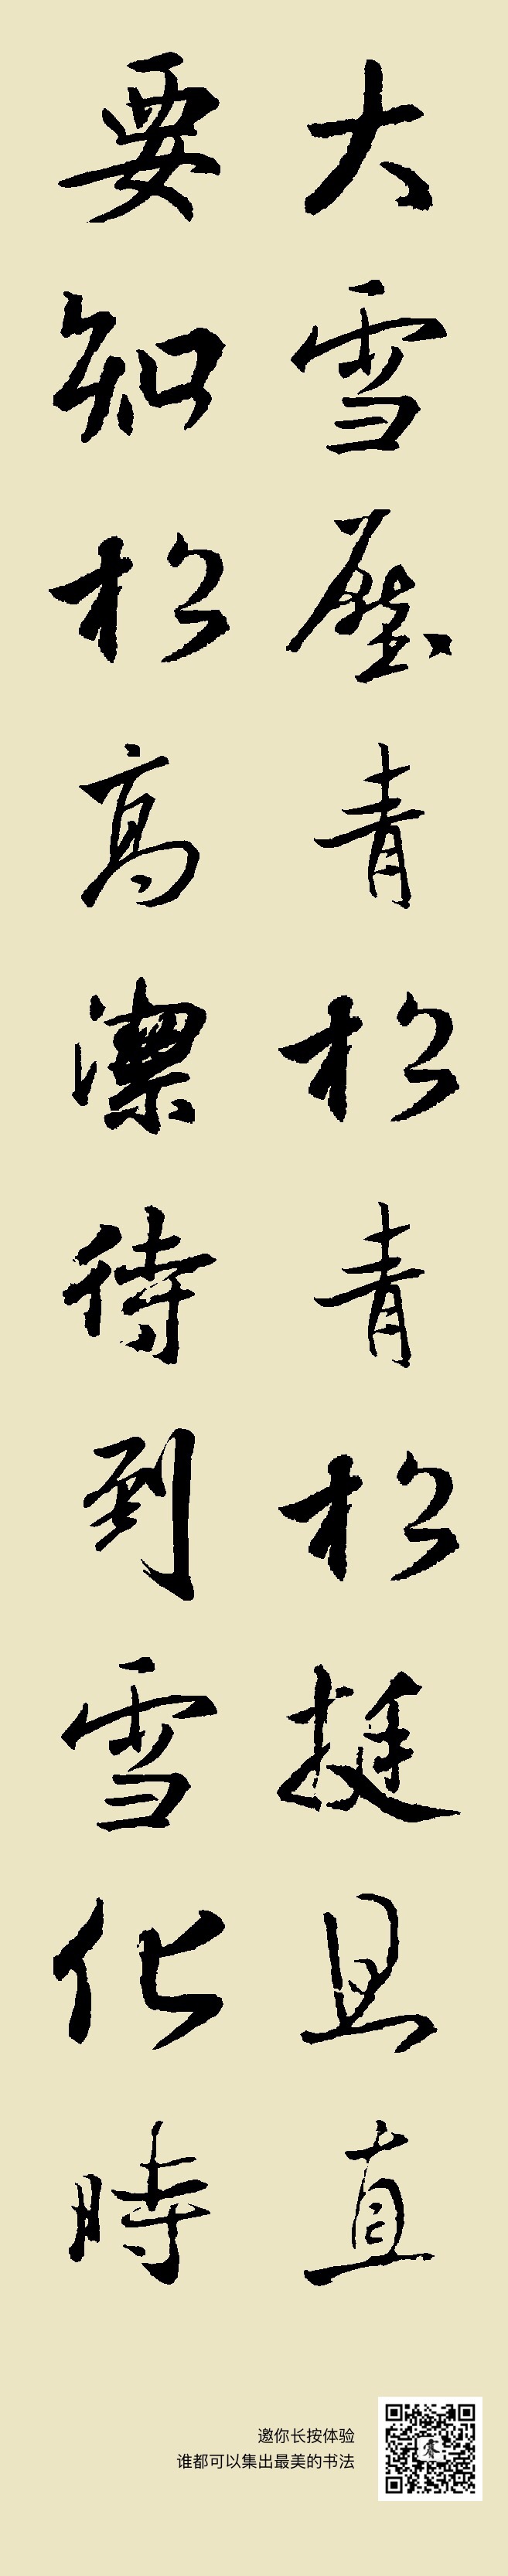 大雪壓青松青松挺且直
要知松高潔待到雪化時
邀你长按体验
谁都可以集出最美的书法